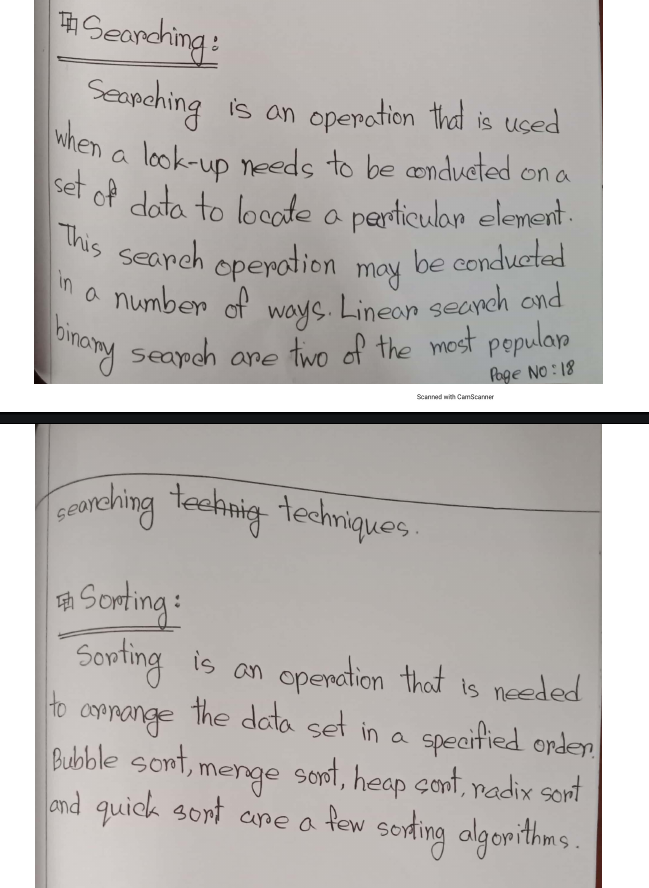 Searching:
Searching is an operation that is used
when a look-up needs to be conducted on a
set of data to locate a particular element.
This search operation may be conducted
in a number of ways. Linear search and
binary search are two of the most popular
Page NO: 18
Scanned with CamScanner
searching technig techniques.
Sorting:
Sorting is an operation that is needed
to arrange the data set in a specified order.
Bubble sort, merge sort, heap sort, radix sort
and quick sort are a few sorting algorithms.